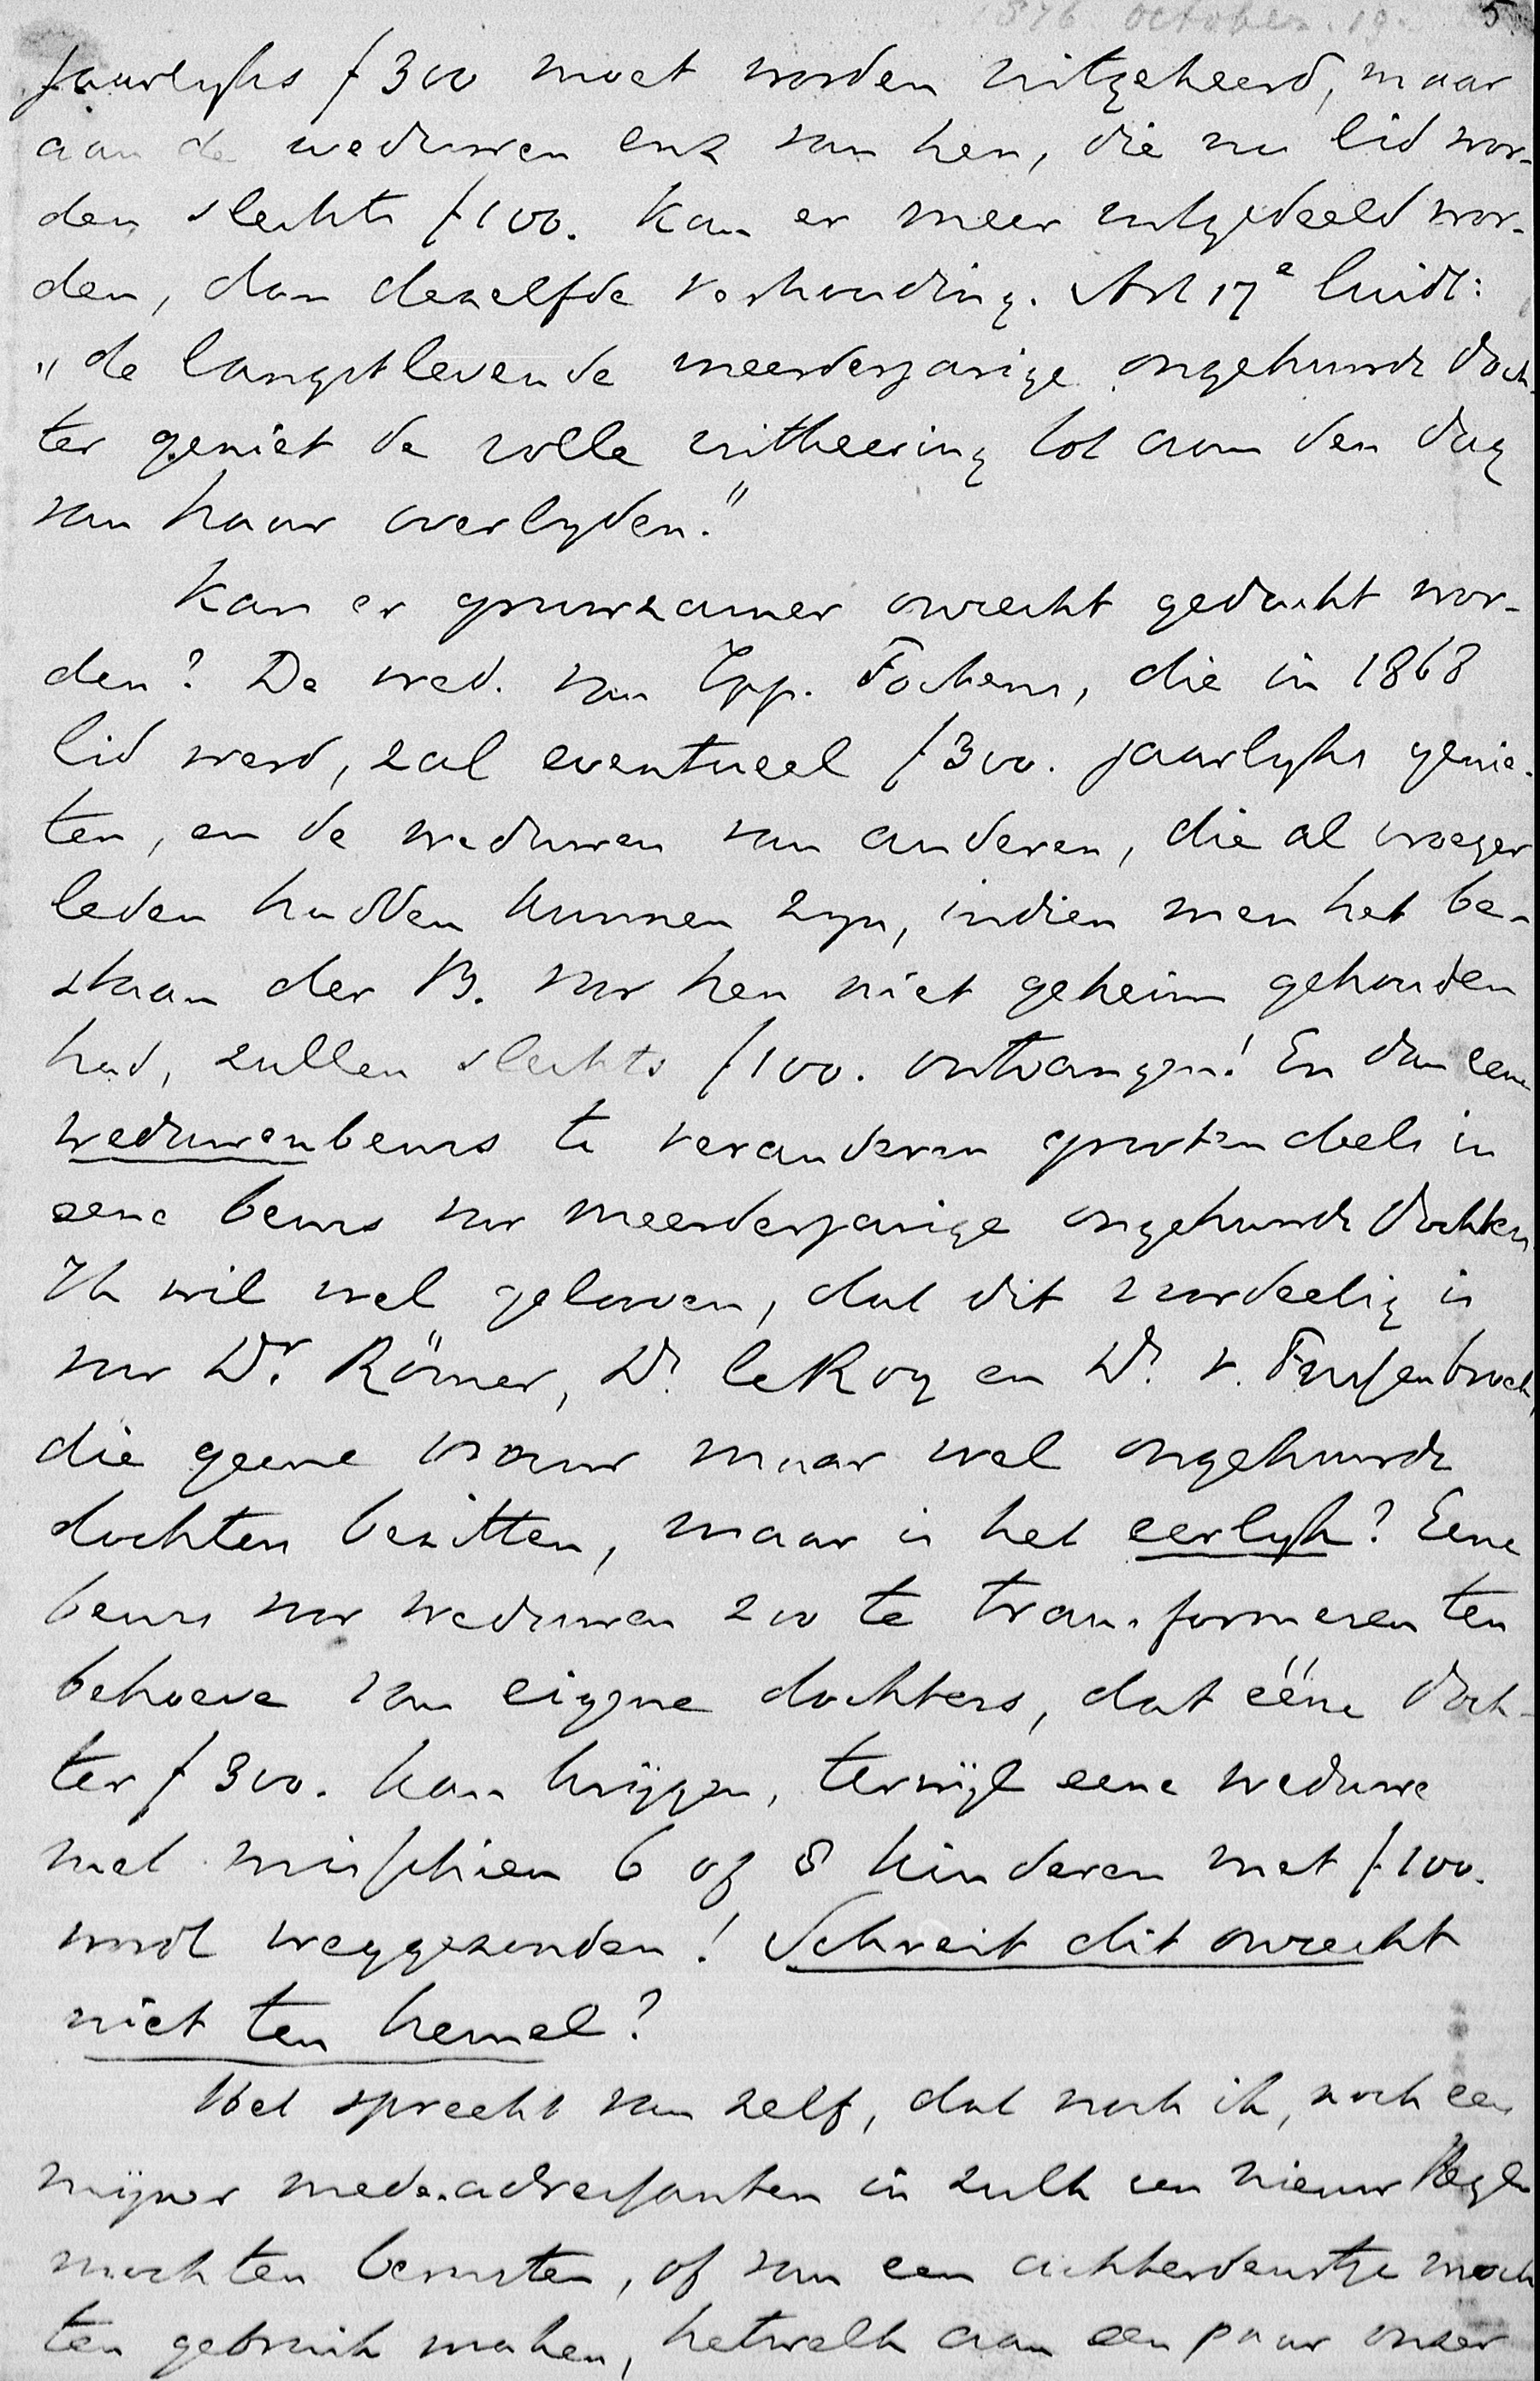 1876 october. 19. 5
jaarlyks f 300 moet worden uitgekeerd, maar
aan de weduwen enz van hen, die nu lid wor-
den slechts f 100. Kan er meer uitgedeeld wor-
den, dan dezelfde verhouding. Art 17e luidt:
"de langstlevende meerderjarige ongehuwde doch-
ter geniet de volle uitkeering tot aan den dag
van haar overlyden."
Kan er gruwzamer onrecht gedacht wor-
den? De wed. van Fockens, die in 1868
lid werd, zal eventueel f 300. jaarlyks genie-
ten, en de weduwen van anderen, die al vroeger
leden hadden kunnen zyn, indien men het be-
staan der B. voor hen niet geheim gehouden
had, zullen slechts f 100. ontvangen! En dan eene
weduwenbeurs te veranderen grootendeels in
eene beurs voor meerderjarige ongehuwde dochters
Ik wil wel gelooven, dat dit voordeelig is
voor Dr. Römer, Dr. le Roy en Dr. v.
die geene vrouw maar wel ongehuwde
dochters bezitten, maar is het eerlyk? Eene
beurs voor weduwen zoo te transformeren ten
behoeve van eigene dochters, dat ééne doch-
ter f 300. kan krijgen, terwijl eene weduwe
met misschien 6 of 8 kinderen met f 100.
wordt weggezonden! Schreit dit onrecht
niet ten hemel?
Het spreekt van zelf, dat noch ik, noch een
mijner mede-adressanten in zulk een nieuw Regl
mochten berusten, of van een achterdeurtje moch
ten gebruik maken, hetwelk aan een paar onzer